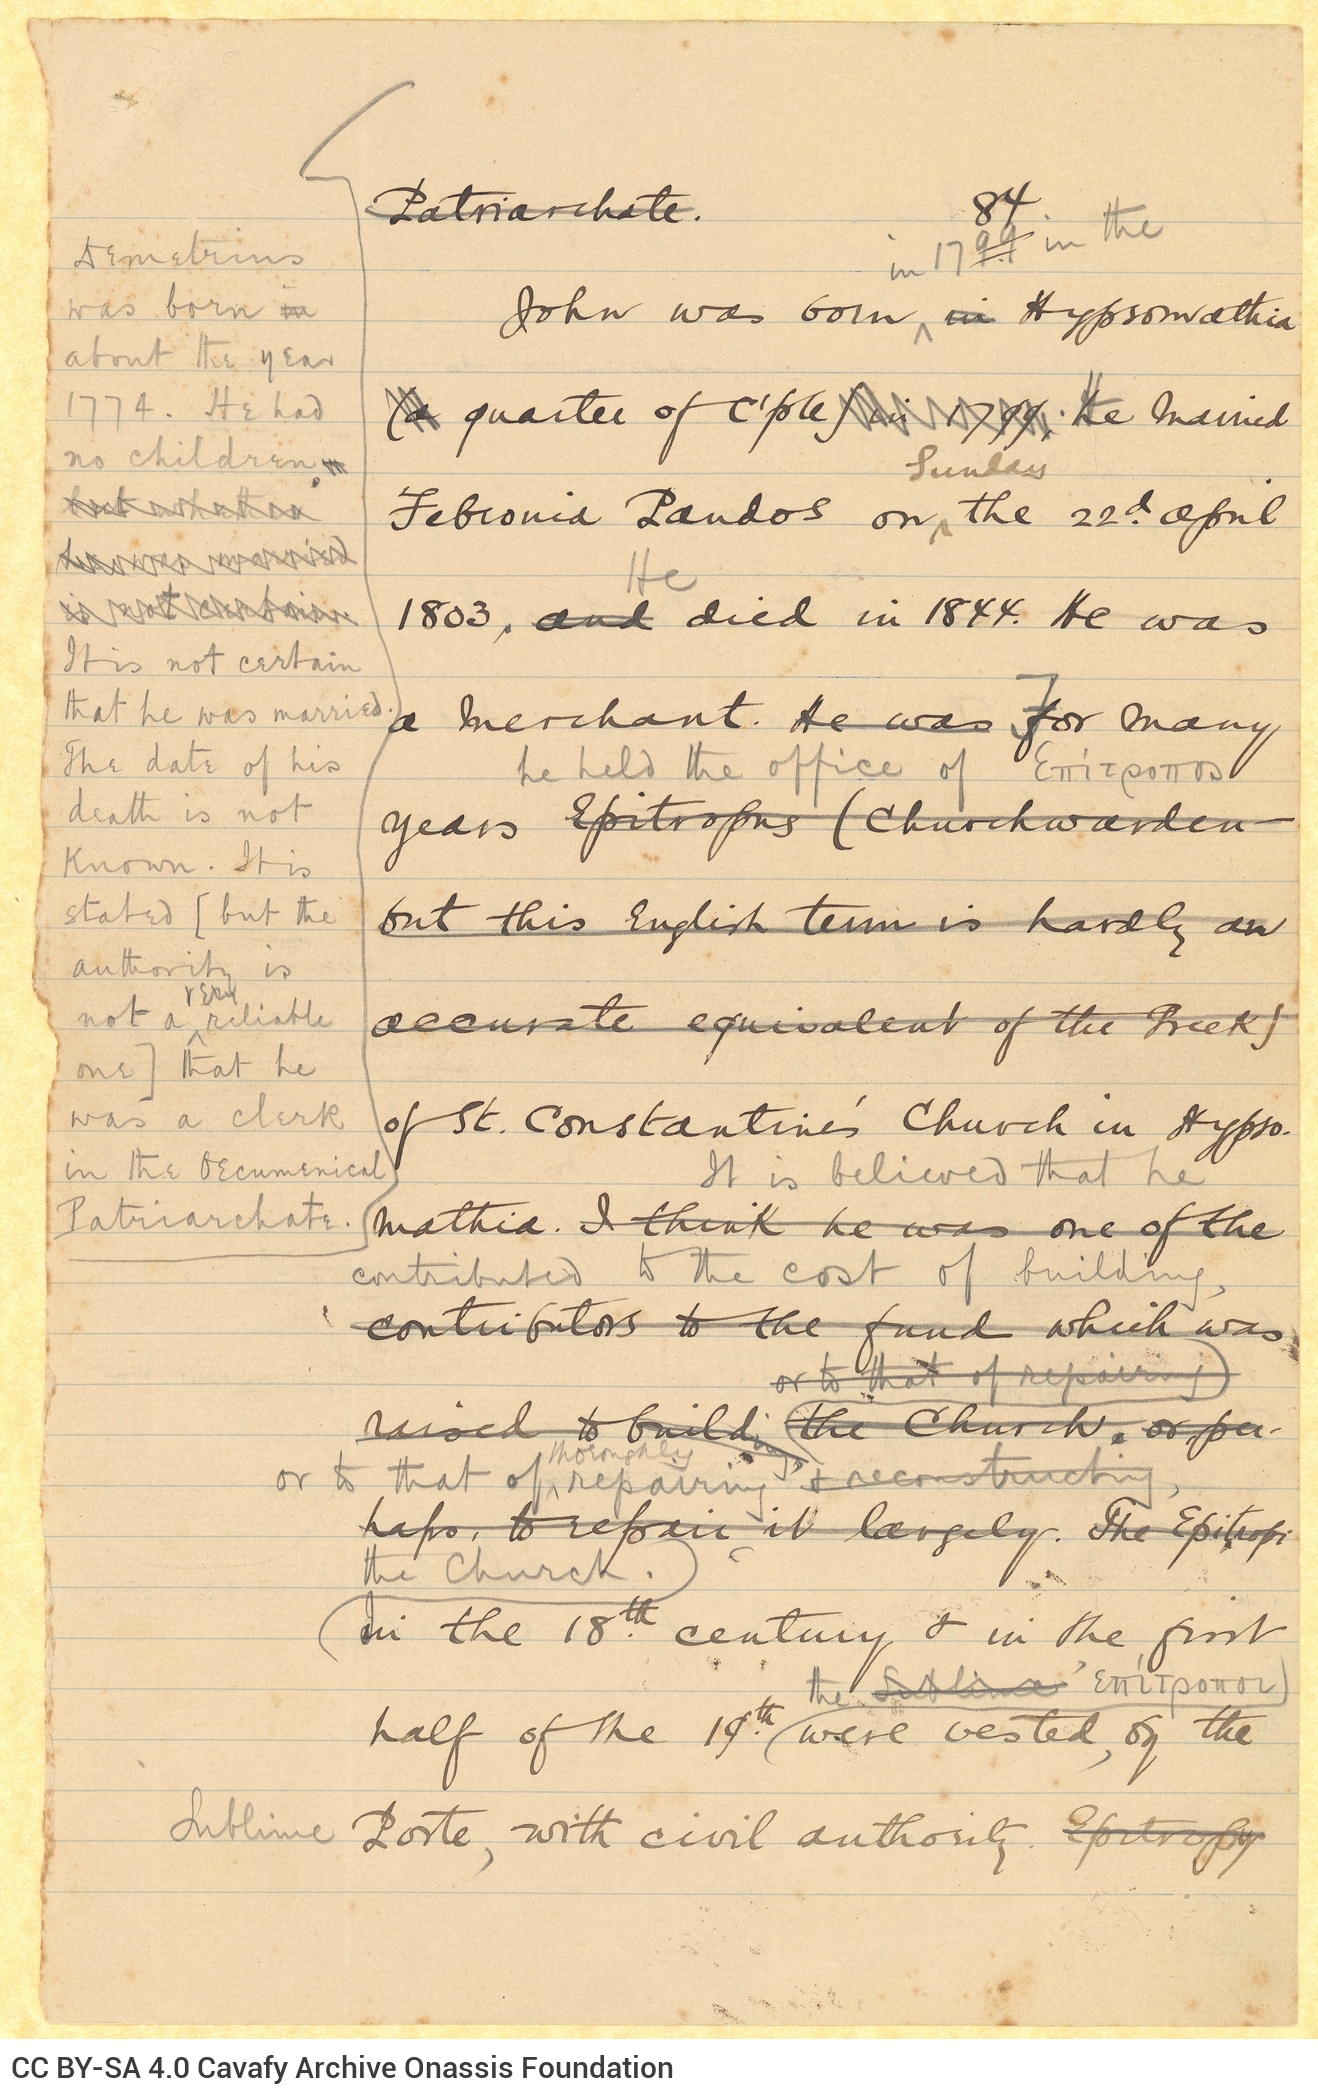 Patriarchate.
84
in 1799 in the
John was born in Hypsomathia
(a quarter of C'ple) in 1799. He married
Sunday
Febronia Pandos on the 22d April
He
1803, and died in 1844. He was
a merchant. He was For many
he held the office of Ἐπίτροπος
years Epitropus (Churchwarden—
but this English term is hardly an
accurate equivalent of the Greek)
of St. Constantine's Church in Hypso-
It is believed that he
mathia. I think he was one of the
contributed to the cost of building,
contributors to the fund which was
or to that of repairing
raised to build the Church, or, per-
thoroughly
or to that of repairing & reconstructing,
haps, to repair it largely. The Epitropi
the Church.
In the 18th century & in the first
the Sublime Ἐπίτροποι
half of the 19th were vested, by the
Sublime Porte, with civil authority. Epitropy
Demetrius
was born in
about the year
1774. He had
no children
but whether
he was married
is not certain.
It is not certain
that he was married.
The date of his
death is not
known. It is
stated [but the
authority is
very
not a reliable
one] that he
was a clerk
in the Oecumenical
Patriarchate.
CC BY-SA 4.0 Cavafy Archive Onassis Foundation